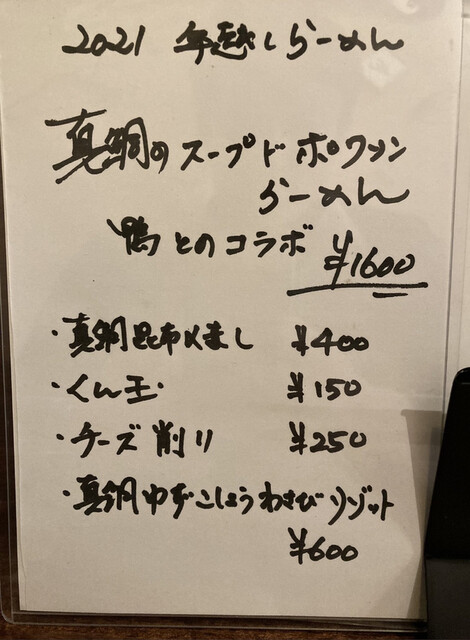 2021 年越しらーめん
真鯛のスープドポワソン
らーめん
鴨とのコラボ ¥1600
・真鯛昆布〆まし ¥400
・くん玉・ ¥150
・チーズ削り ¥250
・真鯛ゆずこしょうわさびリゾット
¥600